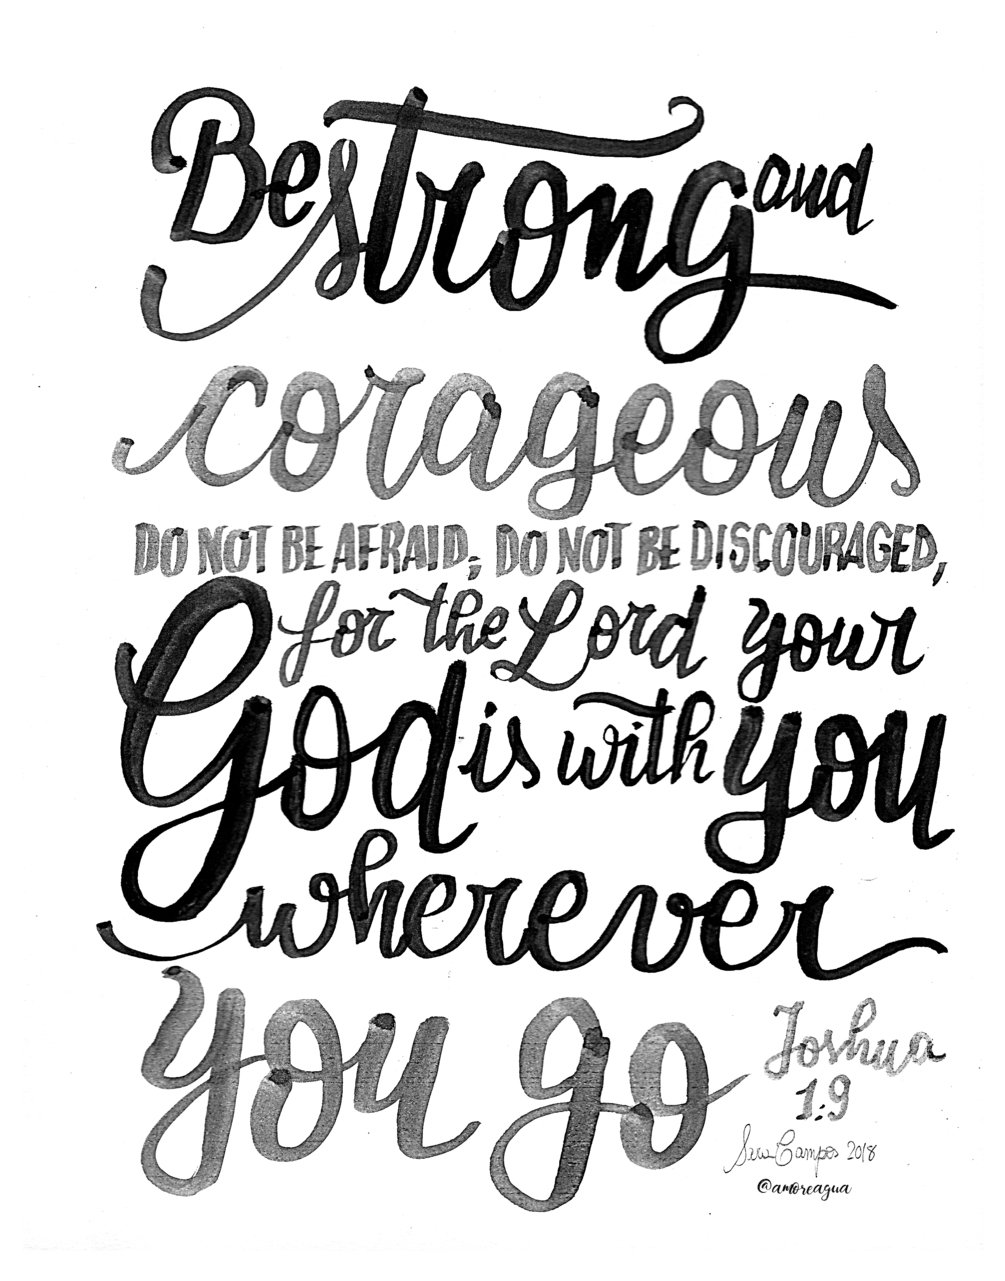 Be strong and
corageous
DO NOT BE AFRAID; DO NOT BE DISCOURAGED,
for the Lord your
God is with you
wherever
you go
Joshua
1:9
Campos 2018
@amoreagua